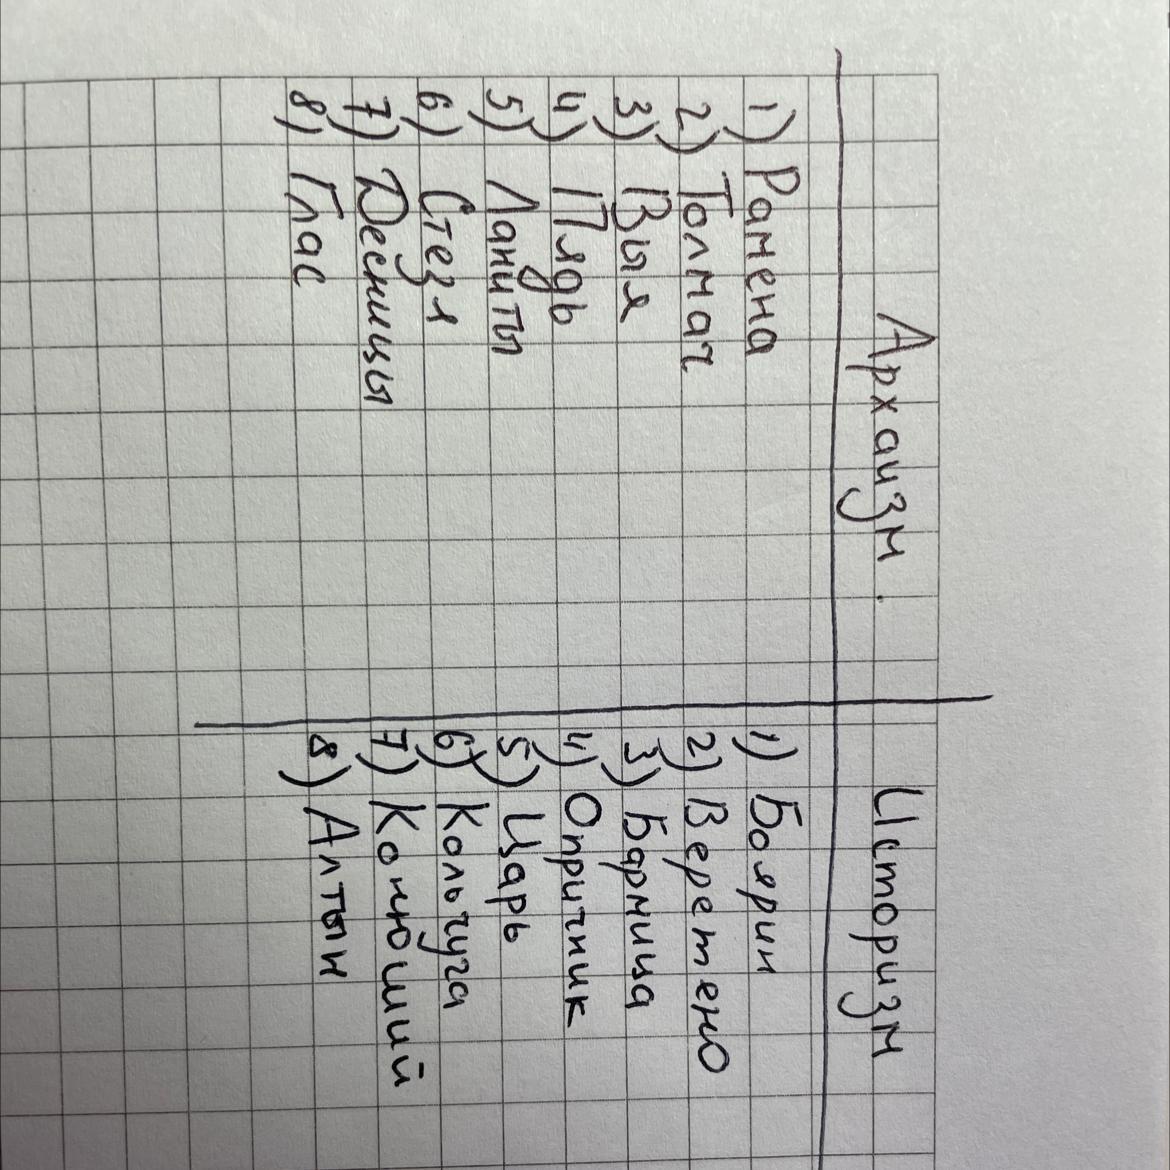 Архаизм.
1) Рамена
2) Толмач
3) Выя
4) Пядь
5) Ланиты
6) Стезя
7) Десницы
8) Глас
Историзм
1) Боярин
2) Веретено
3) Бармица
4) Опричник
5) Царь
6) Кольчуга
7) Конюший
8) Алтын